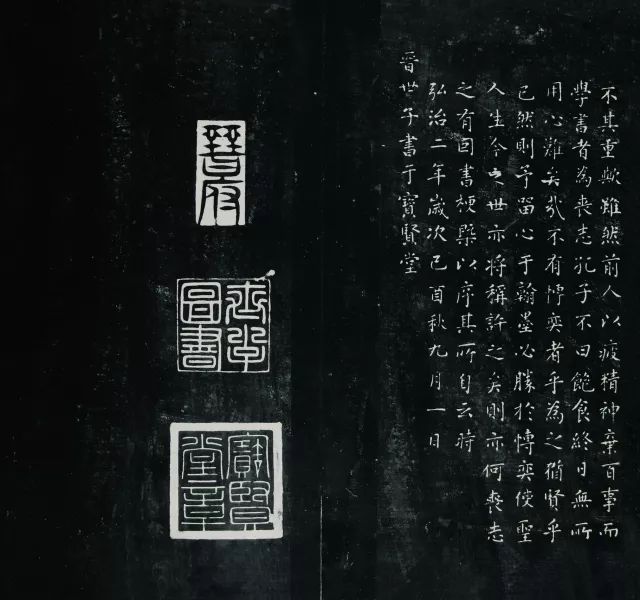 不其重歟雖然前人以疲精神棄百事而
學書者為喪志孔子不曰飽食終日無所
用心難矣哉不有博奕者乎為之猶賢乎
已然則予留心于翰墨必勝於博奕使聖
人生今之世亦將稱許之矣則亦何喪志
之有因書梗槩以序其所自云時
弘治二年歲次己酉秋九月一日
晉世子書于寶賢堂
晉府
圖書
寶賢堂章